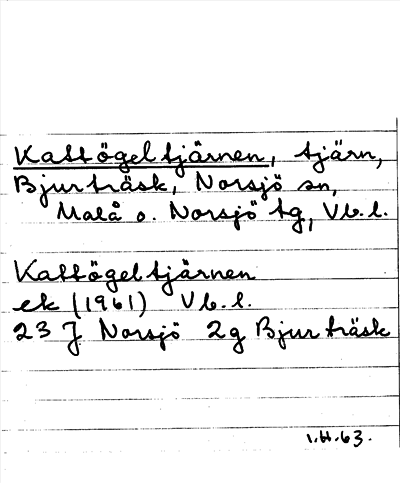 Kattögeltjärnen, tjärn,
Bjurträsk, Norsjö sn,
Malå o. Norsjö tg, Vb. l.
Kattögeltjärnen
ek (1961) Vb. l.
23 J Norsjö 2g Bjurträsk